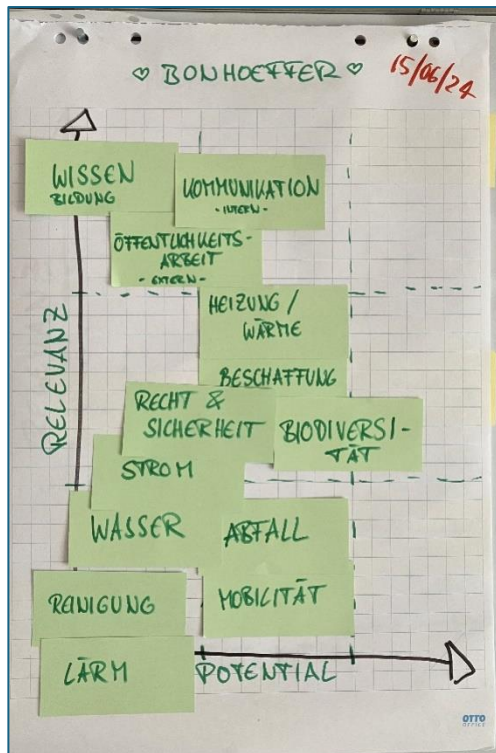 ♡ BONHOEFFER ♡
15/06/24
WISSEN
BILDUNG
KOMMUNIKATION
- INTERN -
ÖFFENTLICHKEITS-
ARBEIT
- EXTERN -
HEIZUNG /
WÄRME
BESCHAFFUNG
RELEVANZ
RECHT &
SICHERHEIT
BIODIVERSI-
TÄT
STROM
WASSER
ABFALL
REINIGUNG
MOBILITÄT
LÄRM
POTENTIAL
OTTO
OFFICE